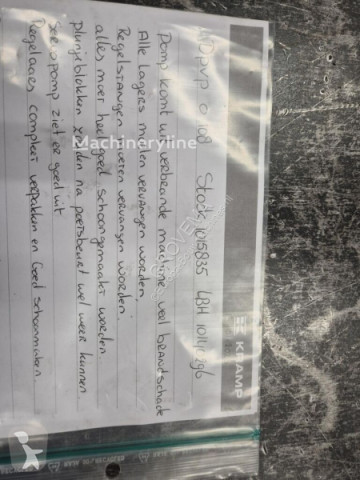 KRAMP
Stock 1015835 LBH
Pomp komt uit verbrande machine veel brandschade
Alle Lagers moeten vervangen worden
Regelstangen moeten vervangen worden.
alles moet heel goed schoongemaakt worden.
plunjerblokken zouden na poetsbeurt wel weer kunnen
Servopomp ziet er goed uit
Regelaars compleet verpakken en Goed schoonmaken
Machineryline